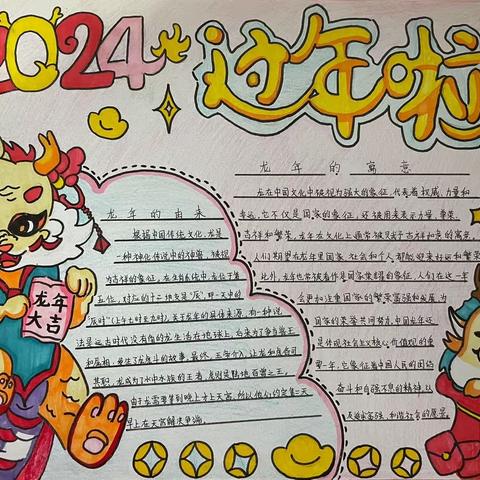 2024
过年啦
龙年的由来
根据中国传统文化,龙是
一种神化传说中的神兽,被视
为吉祥的象征。在生肖体系中,龙位于第
五位,对应的十二地支是“辰”,即一天中的
“辰时”(上午七时至九时)关于龙年的具体来源,有一种说
法是远古时代没有角的龙生活在地球上,
和虎相,发生了龙虎斗的故事最终,玉帝令入,让龙和虎各司
其职,龙成为了水中水族的王者,虎则是陆地百兽之王。
由于龙需要等到晚上才上天宫,所以他人约定第二天
早上在天宫解决争端。
龙年的寓意
龙在中国文化中被视为强大的象征,代表着权威、力量和
幸运。它不仅是国家的象征,还被用来表示力量、尊荣、
吉祥和繁荣,龙年在文化上通常被赋予吉祥和喜的寓意。
人们期望在龙年里国家、社会和个人都能迎来好运和繁荣
此外,龙年也常被看作是国家集体的象征,人们在这一年
会更加注重国家的繁荣富强和发展,为
国家的荣誉共同努力。中国龙年还
是体现社会主义核心价值观的重
要一年,它象征着中国人民的团结
奋斗和自强不息的精神,以
及追求富强、和谐社会的愿景。
龙年
大吉